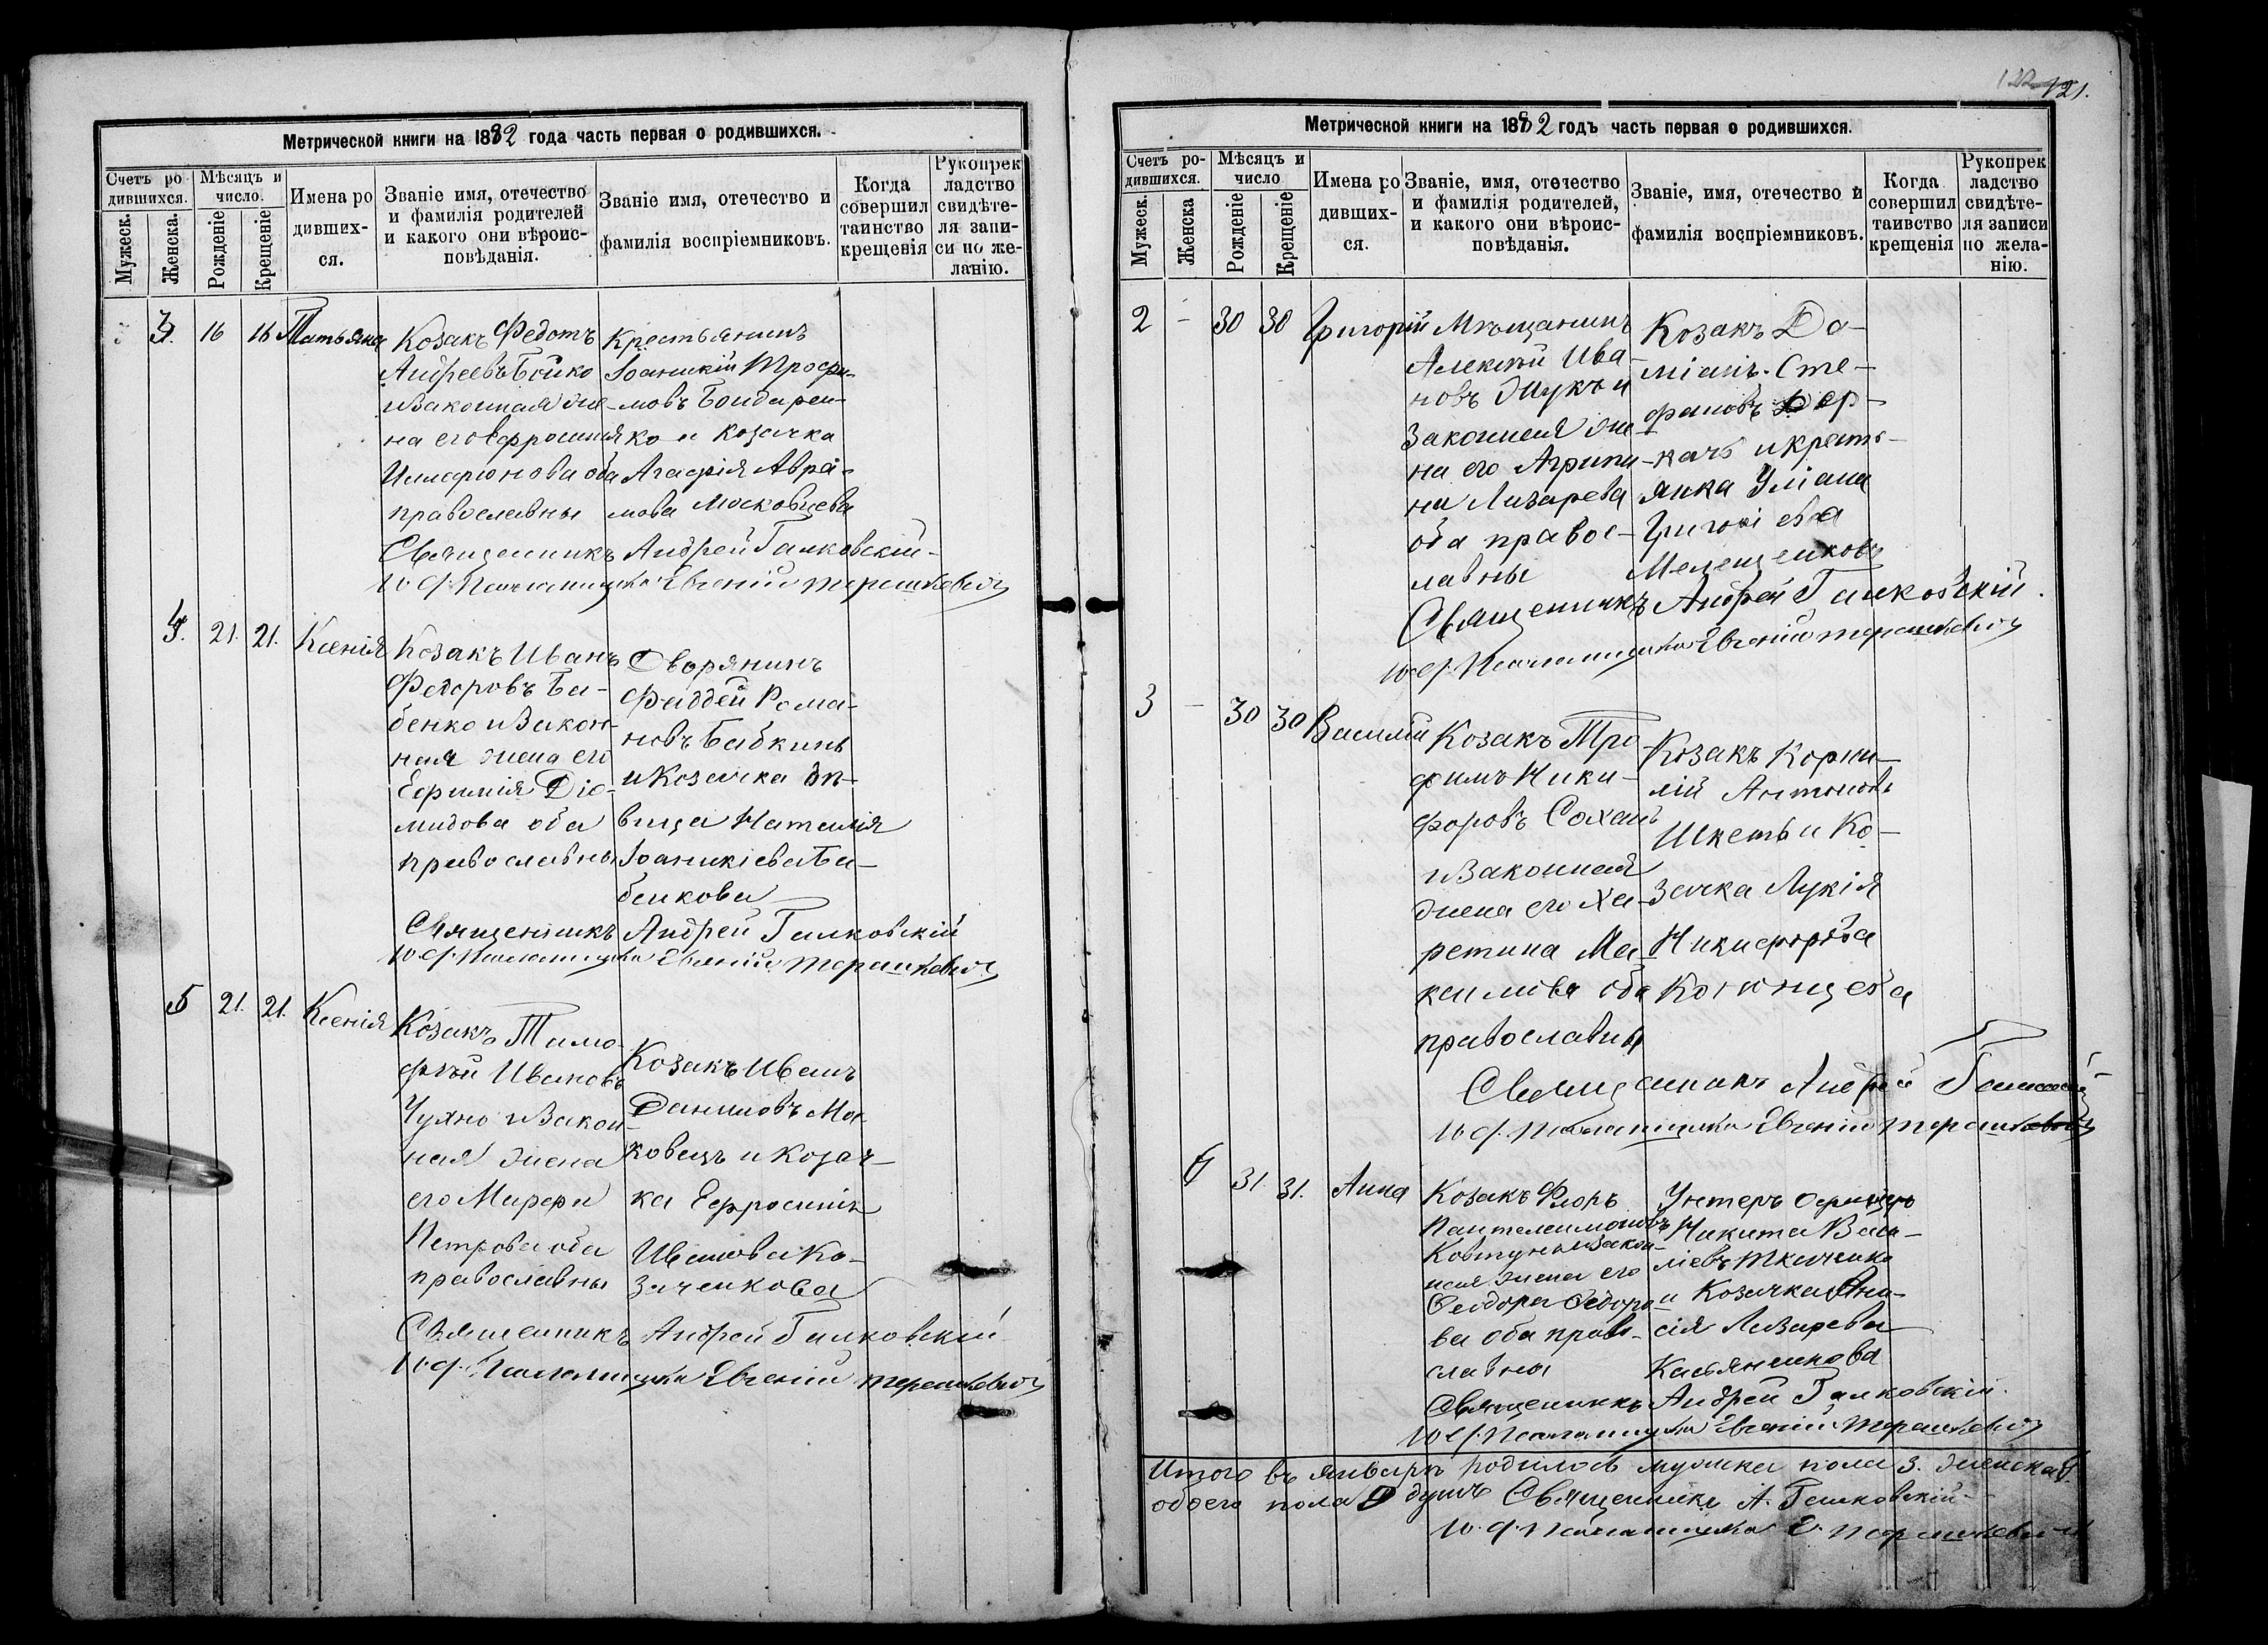 Метрической книги на 1882 года часть первая о родившихся.
Счетъ ро дившихся.
Мужеск.
Женска.
Мѣсяцъ и число.
Рожденіе
Крещеніе
Имена ро дивших-ся.
Званіе имя, отечество и фамилія родителей и какого они вѣроис-повѣданія.
Званіе имя, отечество и фамилія воспріемниковъ.
Когда совершил таинство крещенія
Рукопрек ладство свидѣте-ля запи-си по же-ланію.
3. 16 16 Татьяна
Козакъ Федотъ
Андреевъ Бойко
и законная же-
на его Евфросинія
оба
православны
Крестьянинъ
Іоанникій Трофи-
мовъ Бондарен-
ко и козачка
Агафія Авра-
мова Московцева
Священникъ Андрей Галковскій
И. д. Псаломщика Евгеній Терашкевичъ
4. 21. 21. Ксенія
Козакъ Иванъ
Федоровъ Ба-
бенко и закон-
ная жена его
Ефимія Діо-
мидова оба
православны
Дворянинъ
Фаддей Рома-
новъ Бабкинъ
и Козачка дѣ-
вица Наталія
Іоаникіева Ба-
бенкова
Священникъ Андрей Галковскій
И. д. Псаломщика Евгеній Терашкевичъ
5 21. 21. Ксенія
Козакъ Тимо-
фѣй Ивановъ
Чухно и закон-
ная жена
его Марфа
Петрова оба
православны
Козакъ Иванъ
Даниловъ Ма-
ковецъ и козач-
ка Ефросинія
Иванова Ко-
заченкова
Священникъ Андрей Галковскій
И. д. Псаломщика Евгеній Терашкевичъ
121.
Метрической книги на 1882 годъ часть первая о родившихся.
Счетъ ро-дившихся.
Мужеск.
Женска
Мѣсяцъ и число
Рожденіе
Крещеніе
Имена ро дивших-ся.
Званіе, имя, отечество и фамилія родителей, и какого они вѣроис-повѣданія.
Званіе, имя, отечество и фамилія воспріемниковъ.
Когда совершил таивство крещенія
Рукопрек ладство свидѣте-ля записи по жела-нію.
2 - 30 30 Григорій
Мѣщанинъ
Алексѣй Ива-
новъ Жукъ и
законная же-
на его Агрипи-
на Лазарева
оба правос-
лавны
Козакъ Да-
міанъ Сте-
фановъ Дер-
качъ и кресть-
янка Уліана
Григоріева
Священникъ Андрей Галковскій.
И. д. Псаломщика Евгеній Терашкевичъ
3 - 30 30 Василій
Козакъ Тро-
фимъ Ники-
форовъ Сохань
и законная
жена его Ха-
ретина Ма-
ксимова оба
православны
Козакъ Корни-
лій Антоновъ
Шкеть и Ко-
зачка Лукія
Никифорова
Священникъ Андрей Галковскій
И. д. Псаломщика Евгеній Терашкевичъ
6 31 31. Анна
Козакъ Флоръ
Пантелеимоновъ
Ковтунъ и закон-
ная жена его
Феодора Федоро-
ва оба право-
славны
Унтеръ офицеръ
Никита Васи-
ліевъ Ткаченко
и Козачка Ана-
сія Лазарева
Касьяненкова
Священникъ Андрей Галковскій.
И. д. Псаломщика Евгеній Терашкевичъ
Итого въ январѣ родилось мужска пола 3. женска 6.
обоего пола 9 душъ Священникъ А. Галковскій
И. д. Псаломщика Е. Терашкевичъ